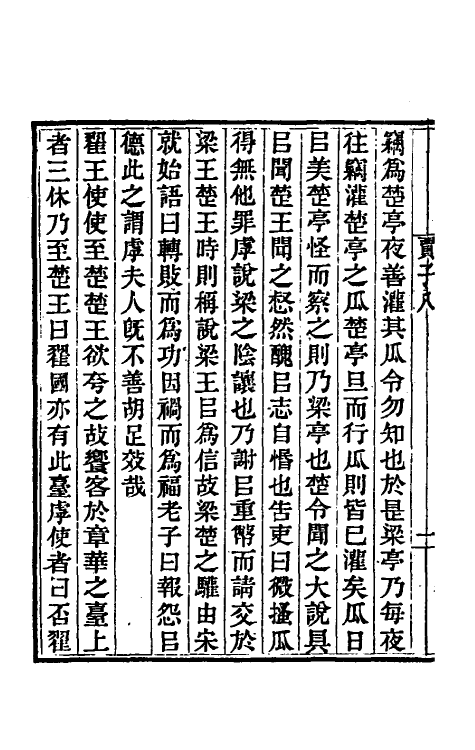 賈子八
二
竊爲楚亭夜善灌其瓜令勿知也於是梁亭乃每夜
往竊灌楚亭之瓜楚亭旦而行瓜則皆已灌矣瓜日
㠯美楚亭怪而察之則乃梁亭也楚令聞之大說具
㠯聞楚王聞之惄然醜㠯志自惛也告吏曰微搔瓜
得無他罪虖說梁之陰讓也乃謝㠯重幣而請交於
梁王楚王時則稱說梁王㠯爲信故梁楚之驩由宋
就始語曰轉敗而爲功因禍而爲福老子曰報怨㠯
德此之謂虖夫人旣不善胡足效哉
翟王使使至楚楚王欲夸之故饗客於章華之臺上
者三休乃至楚王曰翟國亦有此臺虖使者曰否翟